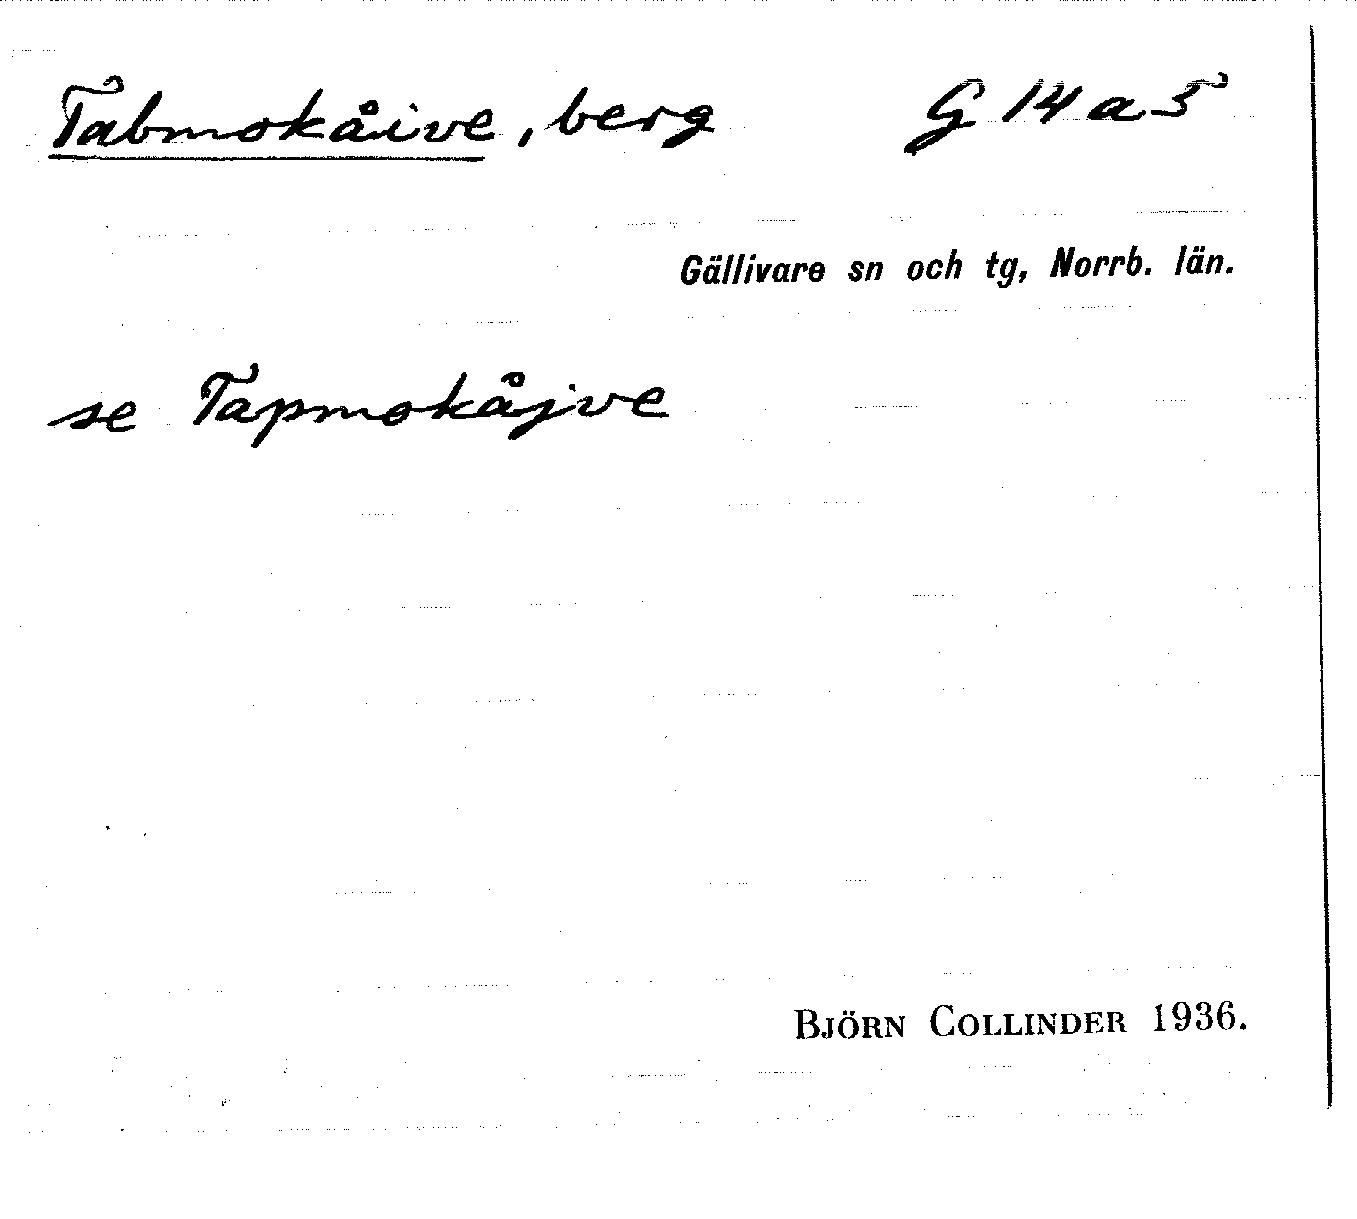 Tabmokåive, berg G 14 a 5
Gällivare sn och tg, Norrb. län.
se Tapmokåjve
BJÖRN COLLINDER 1936.